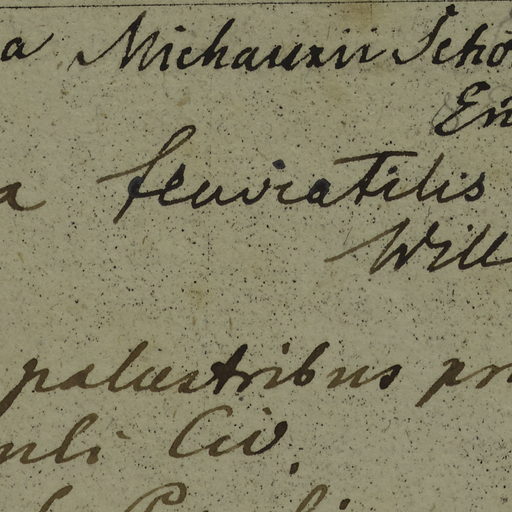 a Michauxii Scho
En
a fluviatilis
Will
palustribus pr
nli Civ.